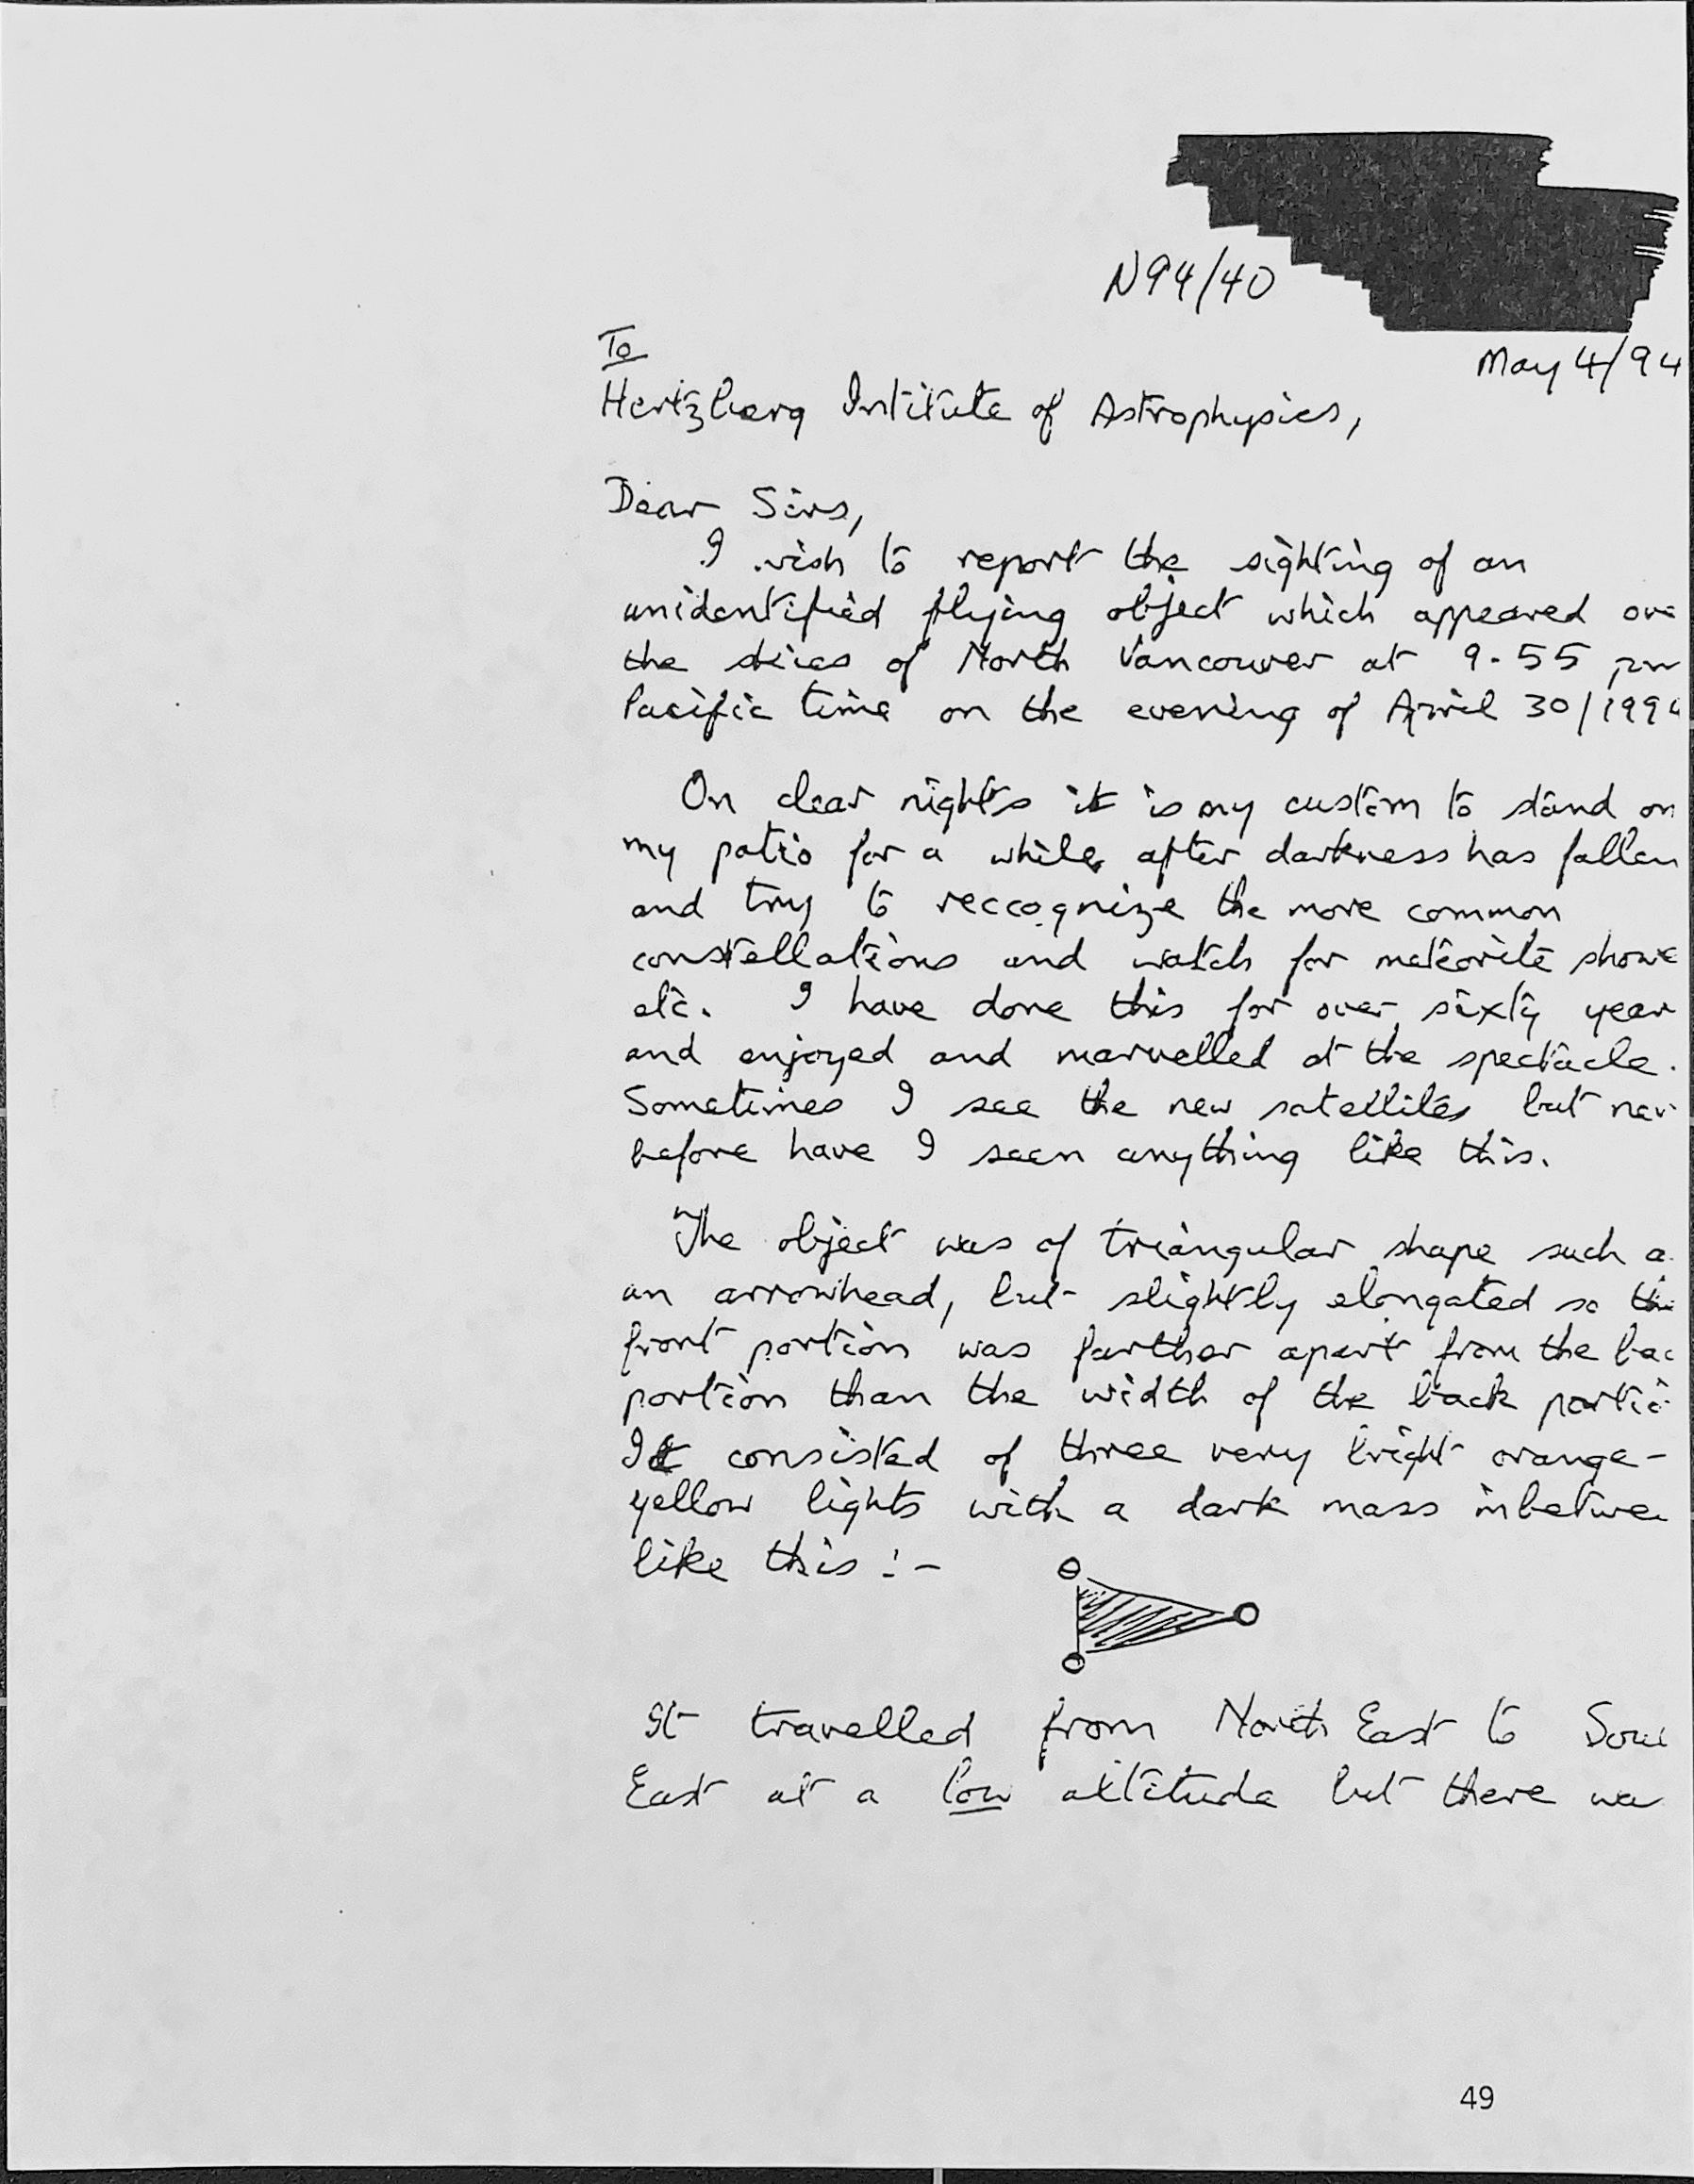 N94/40
May 4/94
To
Hertzberg Intitute of Astrophysics,
Dear Sirs,
I wish to report the sighting of an
unidentified flying object which appeared ove
the skies of North Vancouver at 9.55 pm
Pacific time on the evening of April 30/1994
On clear nights it is my custom to stand on
my patio for a while after darkness has fallen
and try to reccognize the more common
constellations and watch for meteorite showe
etc. I have done this for over sixty year
and enjoyed and marvelled at the spectacle.
Sometimes I see the new satellites but nev
before have I seen anything like this.
The object was of triangular shape such a
an arrowhead, but slightly elongated so the
front portion was farther apart from the bac
portion than the width of the back portio
It consisted of three very bright orange-
yellow lights with a dark mass inbetwee
like this :-
It travelled from North East to Sou
East at a low altitude but there wa
49